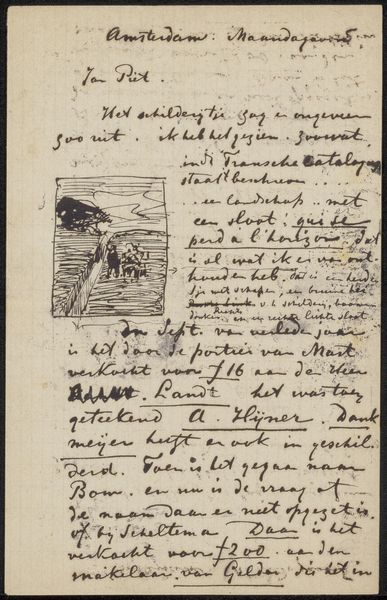 Amsterdam: Maandagavond
Jan Piet.
Het schilderijtje zag er ongeveer
zoo uit. ik heb het gezien. zoowat
in de Fransche Catalogus
staat beschreven ..
.. een landschap .. met
een sloot! qui se
perd a l'horizon. dat
is al wat ik er van ont
houden heb. dat is een herder
met schapen, en bruine hei
v. h. schilderij, boomen
donker. en er rechte lichte sloot
In Sept. van verleden jaar
is het door de portier van Mart
verkocht voor f16 aan de Heer
Landt het was toen
geteekend A Hijner. Dank
meijer heeft er ook in geschil
derd. Toen is het gegaan naar
Bom. en nu is de vraag of
de naam daar er niet opgezet is.
of bij Scheltema Daar is het
verkocht voor f200. aan den
makelaar van Gelder die het in